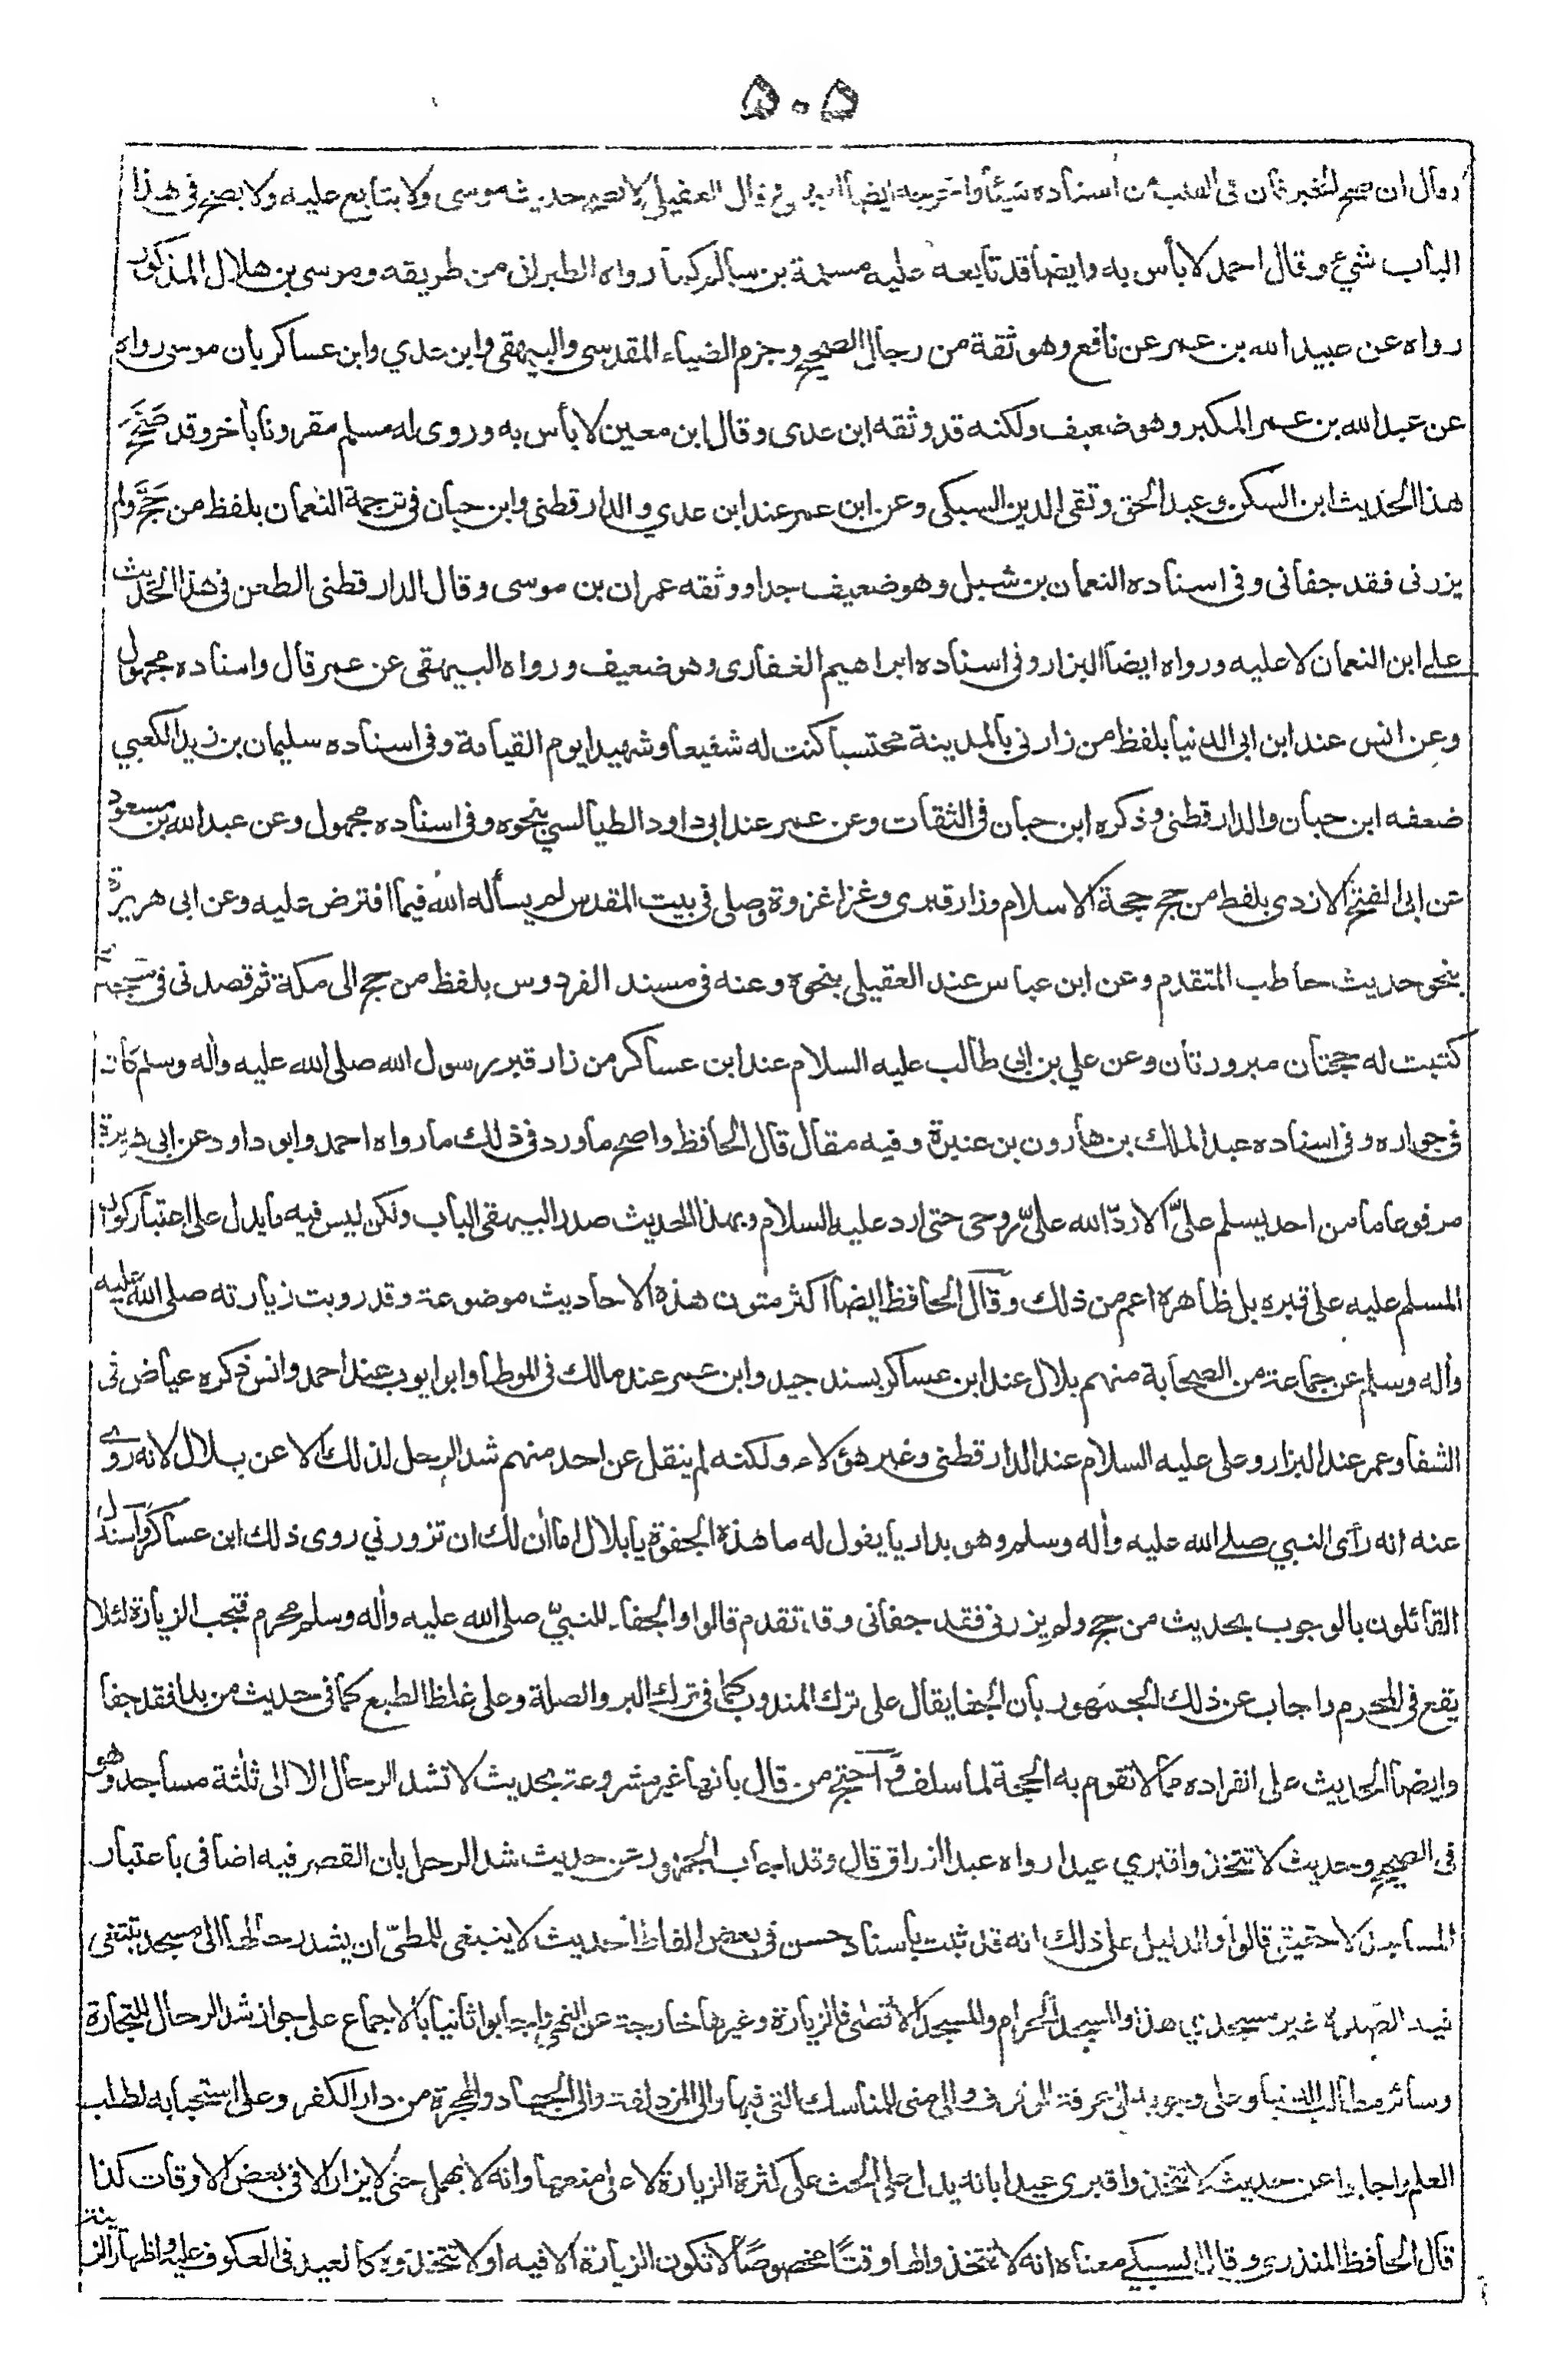 ۵۰۵
وقال ان صح الخبر فان فى القلب من اسناده شيئا واخرجه ايضا البيهقى وقال العقيلى لا يصح حديث موسى ولا يتابع عليه ولا يصح فى هذا
الباب شئ وقال احمد لا بأس به وايضا قد تابعه عليه مسلمة بن سالم كما رواه الطبرانى من طريقه وموسى بن هلال المذكور
رواه عن عبيد الله بن عمر عن نافع وهو ثقة من رجال الصحيح وجزم الضياء المقدسى والبيهقى وابن عدي وابن عساكر بان موسى رواه
عن عبد الله بن عمر المكبر وهو ضعيف ولكنه قد وثقه ابن عدى وقال ابن معين لا بأس به وروى له مسلم مقرونا بأخر وقد صَحَّحَ
هذا الحديث ابن السكن وعبد الحق وتقى الدين السبكى وعن ابن عمر عند ابن عدي والدارقطنى وابن حبان فى ترجمة النعمان بلفظ من حَجَّ ولم
يزرنى فقد جفانى وفى اسناده النعمان بن شبل وهو ضعيف جدا ووثقه عمران بن موسى وقال الدارقطنى الطعن فى هذا الحديث
على ابن النعمان لا عليه ورواه ايضا البزار وفى اسناده ابراهيم الغفارى وهو ضعيف ورواه البيهقى عن عمر قال واسناده مجهول
وعن انس عند ابن ابى الدنيا بلفظ من زارنى بالمدينة محتسبا كنت له شفيعا وشهيدا يوم القيامة وفى اسناده سليمان بن زيد الكعبي
ضعفه ابن حبان والدارقطنى وذكره ابن حبان فى الثقات وعن عمر عند ابى داود الطيالسي بنحوه وفى اسناده مجهول وعن عبد الله بن مسعود
عن ابى الفتح الازدى بلفظ من حج حجة الاسلام وزار قبرى وغزا غزوة وصلى فى بيت المقدس لم يسأله الله فيما افترض عليه وعن ابى هريرة
بنحو حديث حاطب المتقدم وعن ابن عباس عند العقيلى بنحوه وعنه فى مسند الفردوس بلفظ من حج الى مكة ثم قصدنى فى مسجدى
كتبت له حجتان مبرورتان وعن علي بن ابى طالب عليه السلام عند ابن عساكر من زار قبر رسول الله صلى الله عليه واله وسلم كان
فى جواره وفى اسناده عبد الملك بن هارون بن عنبرة وفيه مقال قال الحافظ واصح ما ورد فى ذلك ما رواه احمد وابو داود عن ابى هريرة
مرفوعا ما من احد يسلم علىّ الا ردّ الله علىّ روحى حتى ارد عليه السلام وبهذا الحديث صدر البيهقى الباب ولكن ليس فيه ما يدل على اعتبار كون
المسلم عليه على قبره بل ظاهره اعم من ذلك وقال الحافظ ايضا اكثر متون هذه الاحاديث موضوعة وقد رويت زيارته صلى الله عليه
واله وسلم عن جماعة من الصحابة منهم بلال عند ابن عساكر بسند جيد وابن عمر عند مالك فى الموطا وابو ايوب عند احمد وانس ذكره عياض فى
الشفا وعمر عند البزار وعلى عليه السلام عند الدارقطنى وغير هؤلاء ولكنه لم ينقل عن احد منهم شد الرحل لذلك الا عن بلال لانه روى
عنه انه رأى النبي صلى الله عليه واله وسلم وهو بداريا يقول له ما هذه الجفوة يا بلال اما أن لك ان تزورني روى ذلك ابن عساكر واستدل
القائلون بالوجوب بحديث من حج ولم يزرنى فقد جفانى وقد تقدم قالوا والجفاء للنبيّ صلى الله عليه واله وسلم محرم فتجب الزيارة لئلا
يقع فى المحرم واجاب عن ذلك الجمهور بأن الجفا يقال على ترك المندوب كما فى ترك البر والصلة وعلى غلظ الطبع كما فى حديث من بدا فقد جفا
وايضا الحديث على انفراده مما لا تقوم به الحجة لما سلف واحتج من قال بانها غير مشروعة بحديث لا تشد الرحال الا الى ثلثة مساجد وهو
فى الصحيح وحديث لا تتخذوا قبري عيدا رواه عبد الرزاق قال وقد اجاب الجمهور عن حديث شد الرحل بان القصر فيه اضافى باعتبار
المساجد لا حقيقى قالوا والدليل على ذلك انه قد ثبت باسناد حسن فى بعض الفاظ الحديث لا ينبغى للمطىّ ان يشد رحالها الى مسجد تبتغى
فيه الصلوة غير مسجدي هذا والمسجد الحرام والمسجد الاقصى فالزيارة وغيرها خارجة عن النهى واجابوا ثانيا بالاجماع على جواز شد الرحال للتجارة
وسائر مطالب الدنيا وعلى وجوبه الى عرفة للوقوف والى منى للمناسك التى فيها والى المزدلفة والى الجهاد والهجرة من دار الكفر وعلى استحبابه لطلب
العلم واجابوا عن حديث لا تتخذوا قبرى عيدا بانه يدل على الحث على كثرة الزيارة لا على منعها وانه لا يهمل حتى لا يزار الا فى بعض الاوقات كذا
قال الحافظ المنذرى وقال السبكى معناه انه لا تتخذوا لها وقتًا مخصوصًا لا تكون الزيارة الا فيه او لا تتخذوه كالعيد فى العكوف عليه واظهار الزينة